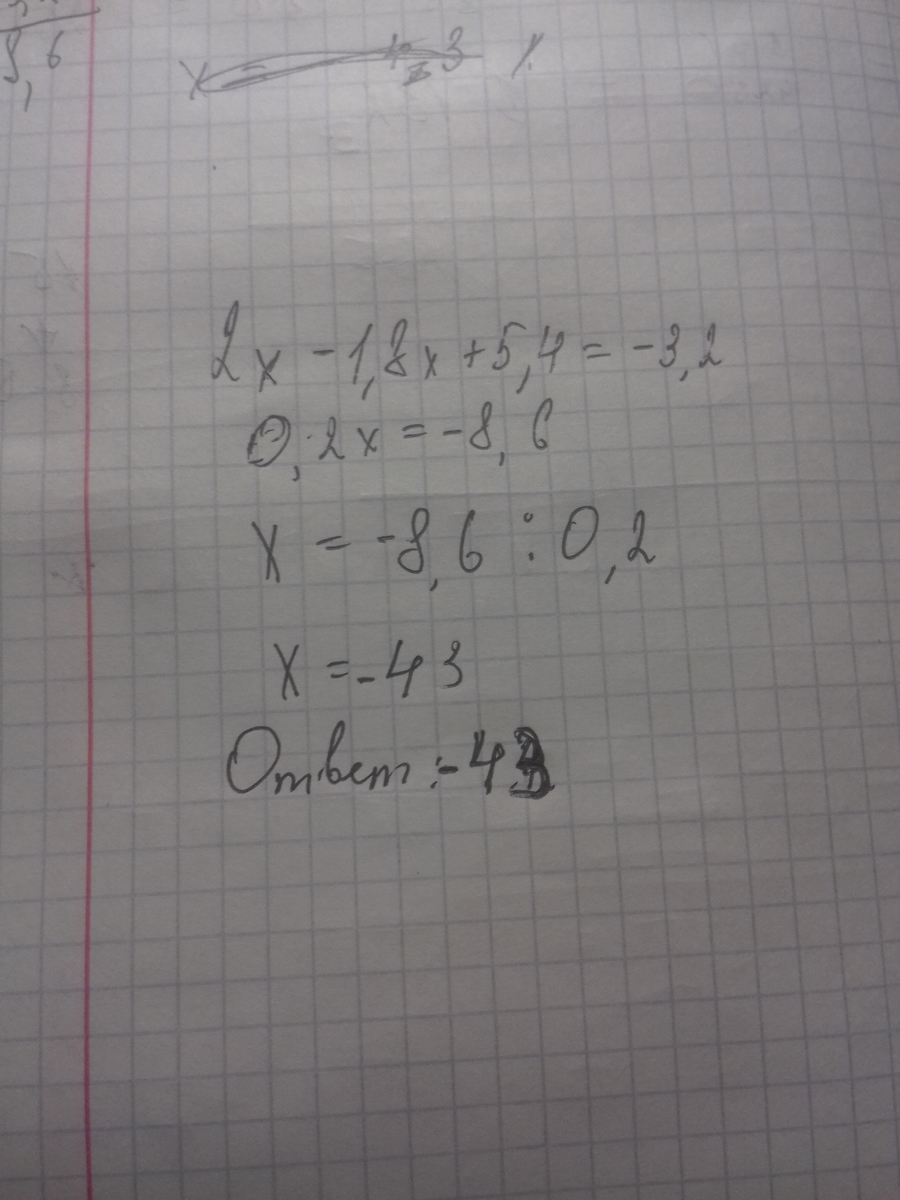 8,6
2x - 1,8x + 5,4 = -3,2
0,2x = -8,6
x = -8,6 : 0,2
x = -43
Ответ: -43